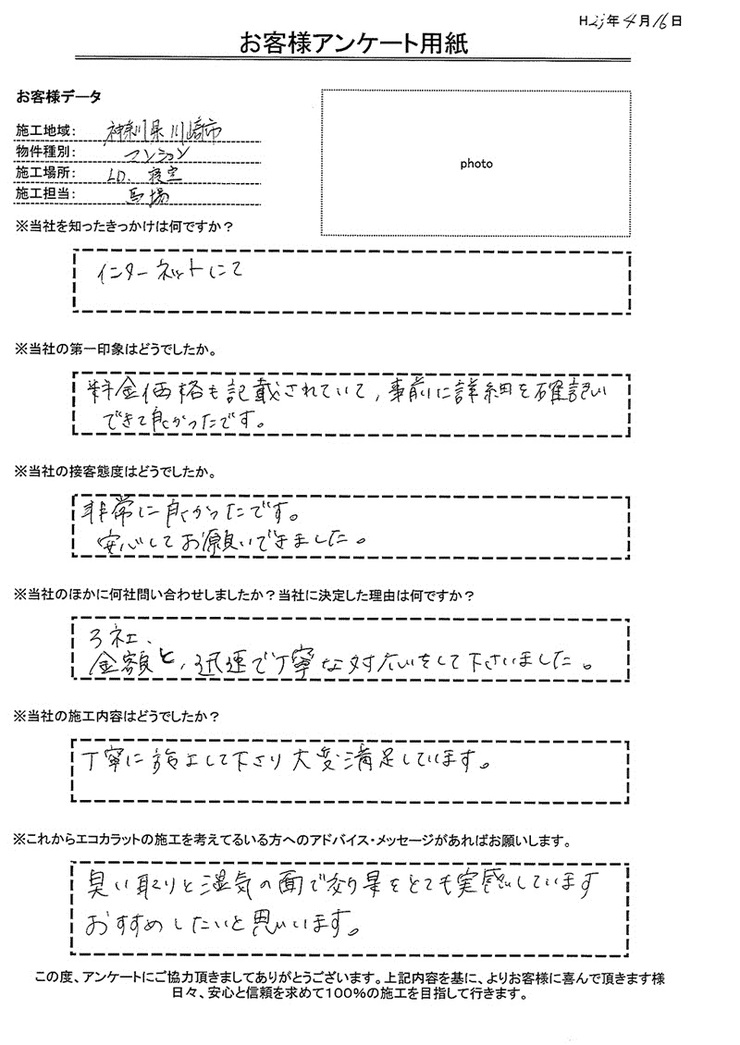 H25年4月16日
お客様アンケート用紙
お客様データ
施工地域： 神奈川県川崎市
物件種別： マンション
施工場所： LD、寝室
施工担当： 馬場
photo
※当社を知ったきっかけは何ですか？
インターネットにて
※当社の第一印象はどうでしたか。
料金価格も記載されていて、事前に詳細を確認
できて良かったです。
※当社の接客態度はどうでしたか。
非常に良かったです。
安心してお願いできました。
※当社のほかに何社問い合わせしましたか？当社に決定した理由は何ですか？
3社、
金額と、迅速で丁寧な対応をして下さいました。
※当社の施工内容はどうでしたか？
丁寧に施工して下さり大変満足しています。
※これからエコカラットの施工を考えてるいる方へのアドバイス・メッセージがあればお願いします。
臭い取りと湿気の面で効果をとても実感しています
おすすめしたいと思います。
この度、アンケートにご協力頂きましてありがとうございます。上記内容を基に、よりお客様に喜んで頂きます様
日々、安心と信頼を求めて100％の施工を目指して行きます。